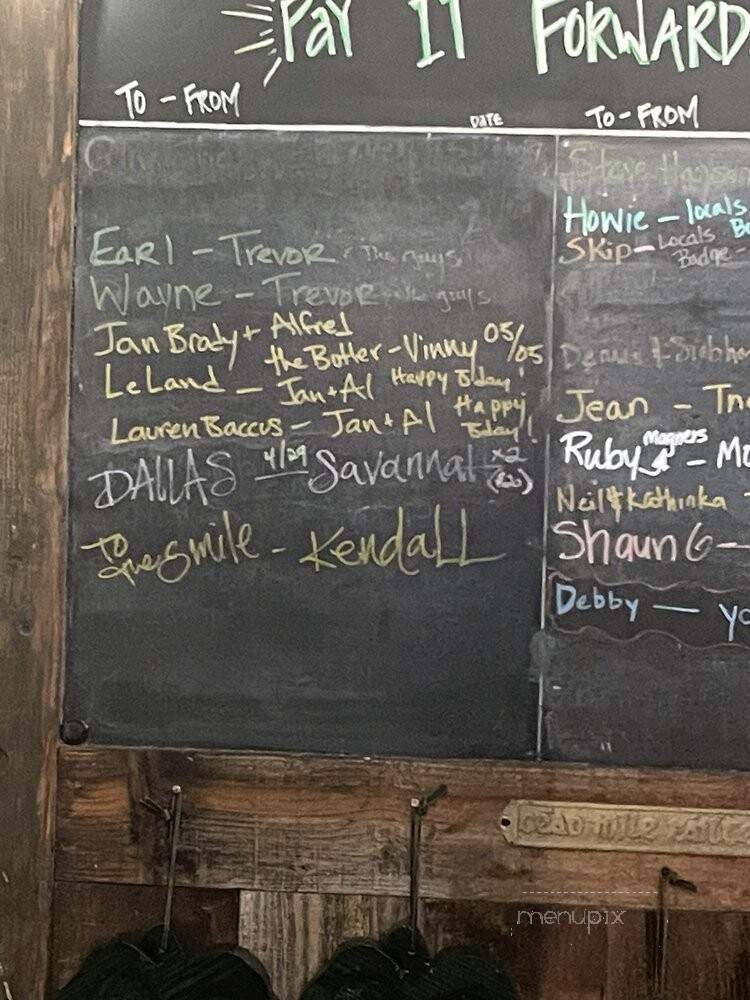 PAY IT FORWARD
TO - FROM
DATE
Earl - Trevor & The guys
Wayne - Trevor & the guys
Jan Brady + Alfred
the Butler - Vinny 05/05
LeLand - Jan + Al Happy Bday!
Lauren Baccus - Jan + Al Happy Bday!
DALLAS 4/29 - Savannah x2
Smile - Kendall
TO - FROM
Steve
Howie - locals
Skip - Locals
Badge -
Jean -
Ruby magners -
Neil & Kathinka
Shaun G -
Debby -
menupix